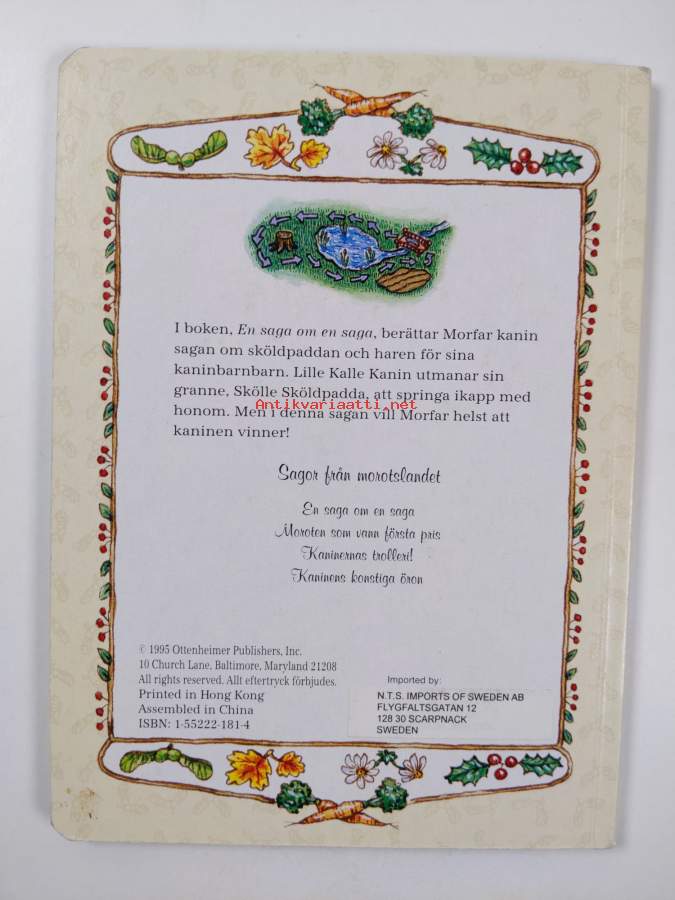 I boken, En saga om en saga, berättar Morfar kanin
sagan om sköldpaddan och haren för sina
kaninbarnbarn. Lille Kalle Kanin utmanar sin
granne, Skölle Sköldpadda, att springa ikapp med
Antikvariaatti.net
honom. Men i denna sagan vill Morfar helst att
kaninen vinner!
Sagor från morotslandet
En saga om en saga
Moroten som vann första pris
Kaninernas trolleri!
Kaninens konstiga öron
© 1995 Ottenheimer Publishers, Inc.
10 Church Lane, Baltimore, Maryland 21208
All rights reserved. Allt eftertryck förbjudes.
Printed in Hong Kong
Assembled in China
ISBN: 1-55222-181-4
Imported by:
N.T.S. IMPORTS OF SWEDEN AB
FLYGFALTSGATAN 12
128 30 SCARPNACK
SWEDEN